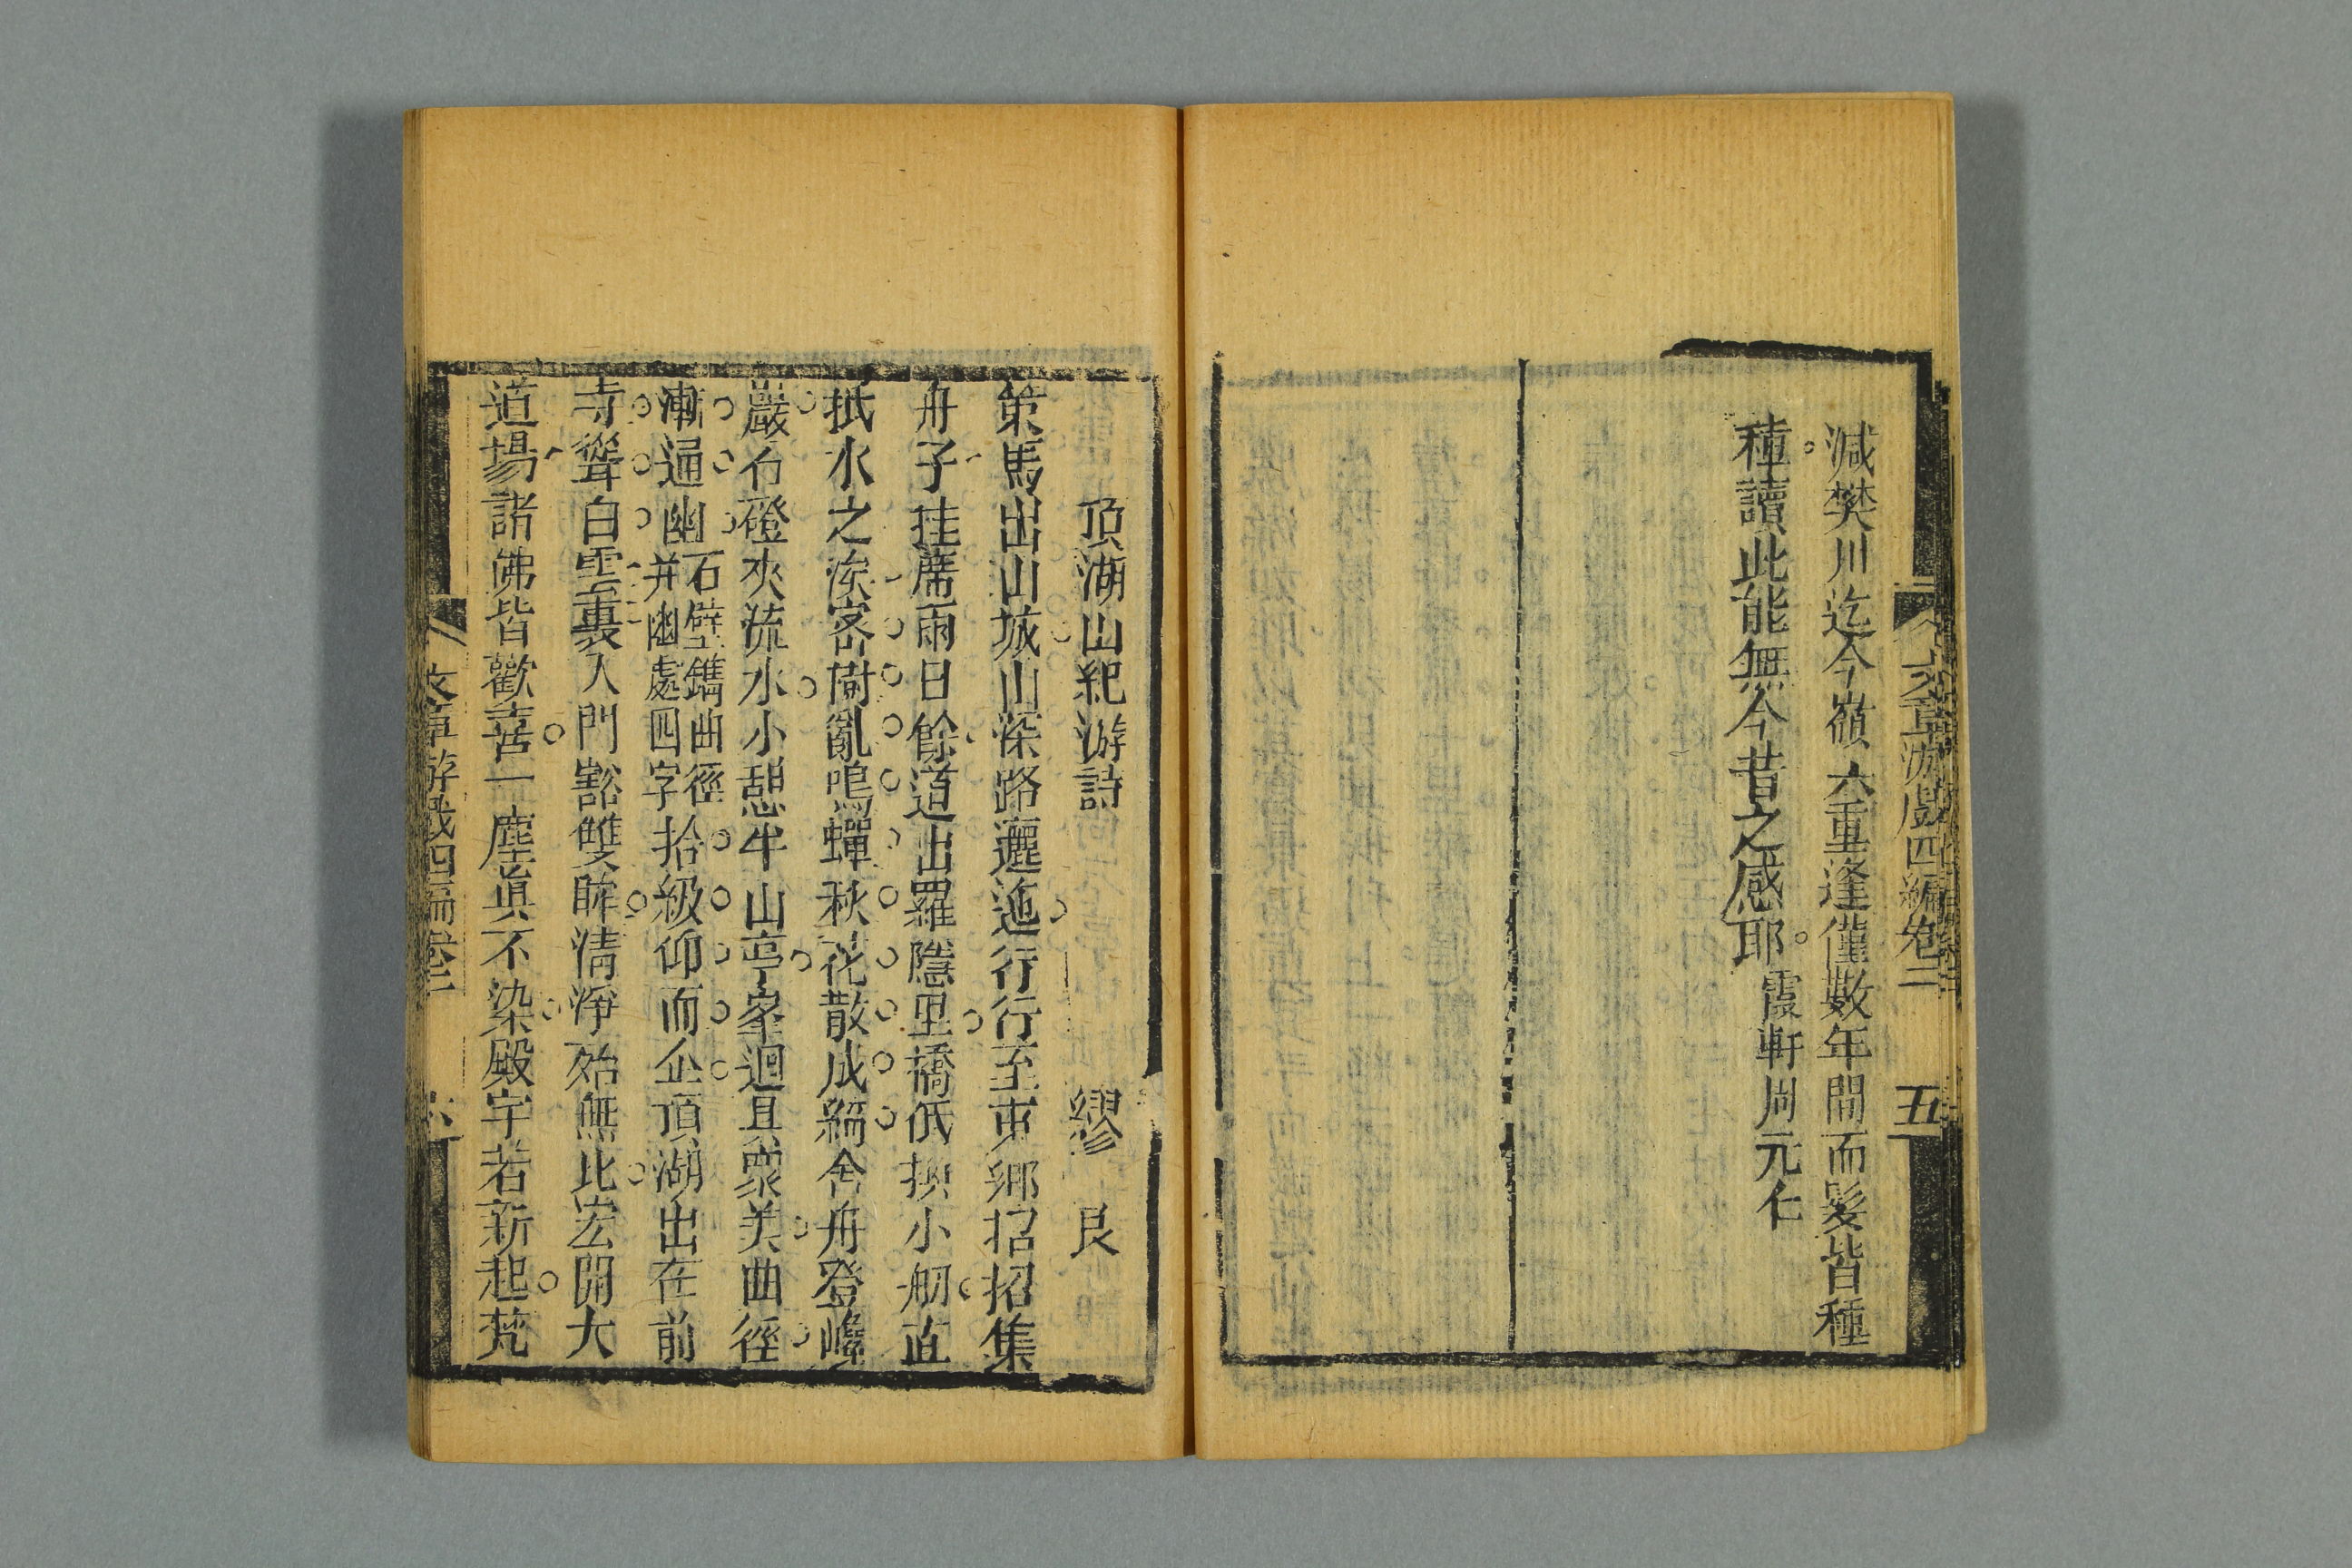 文章游戲四編卷三
五
減樊川迄今嶺六重逢僅數年間而髮皆種
種讀此能無今昔之感耶 霞軒周元仁
頂湖山紀游詩 繆艮
策馬出山城山深路邐迤行行至東鄉招招集
舟子挂蓆雨日餘道出羅隱里橋低換小舠直
抵水之涘密樹亂鳴蟬秋花散成綺舍舟登巉
巖石磴夾流水小憩半山亭峯迴具衆美曲徑
漸通幽石壁鐫曲徑
幷幽處四字拾級仰而企頂湖出在前
寺聳白雲裏入門豁雙眸淸淨殆無比宏開大
道場諸佛皆歡喜一塵眞不染殿宇若新起梵
文章游戲四編卷三
六